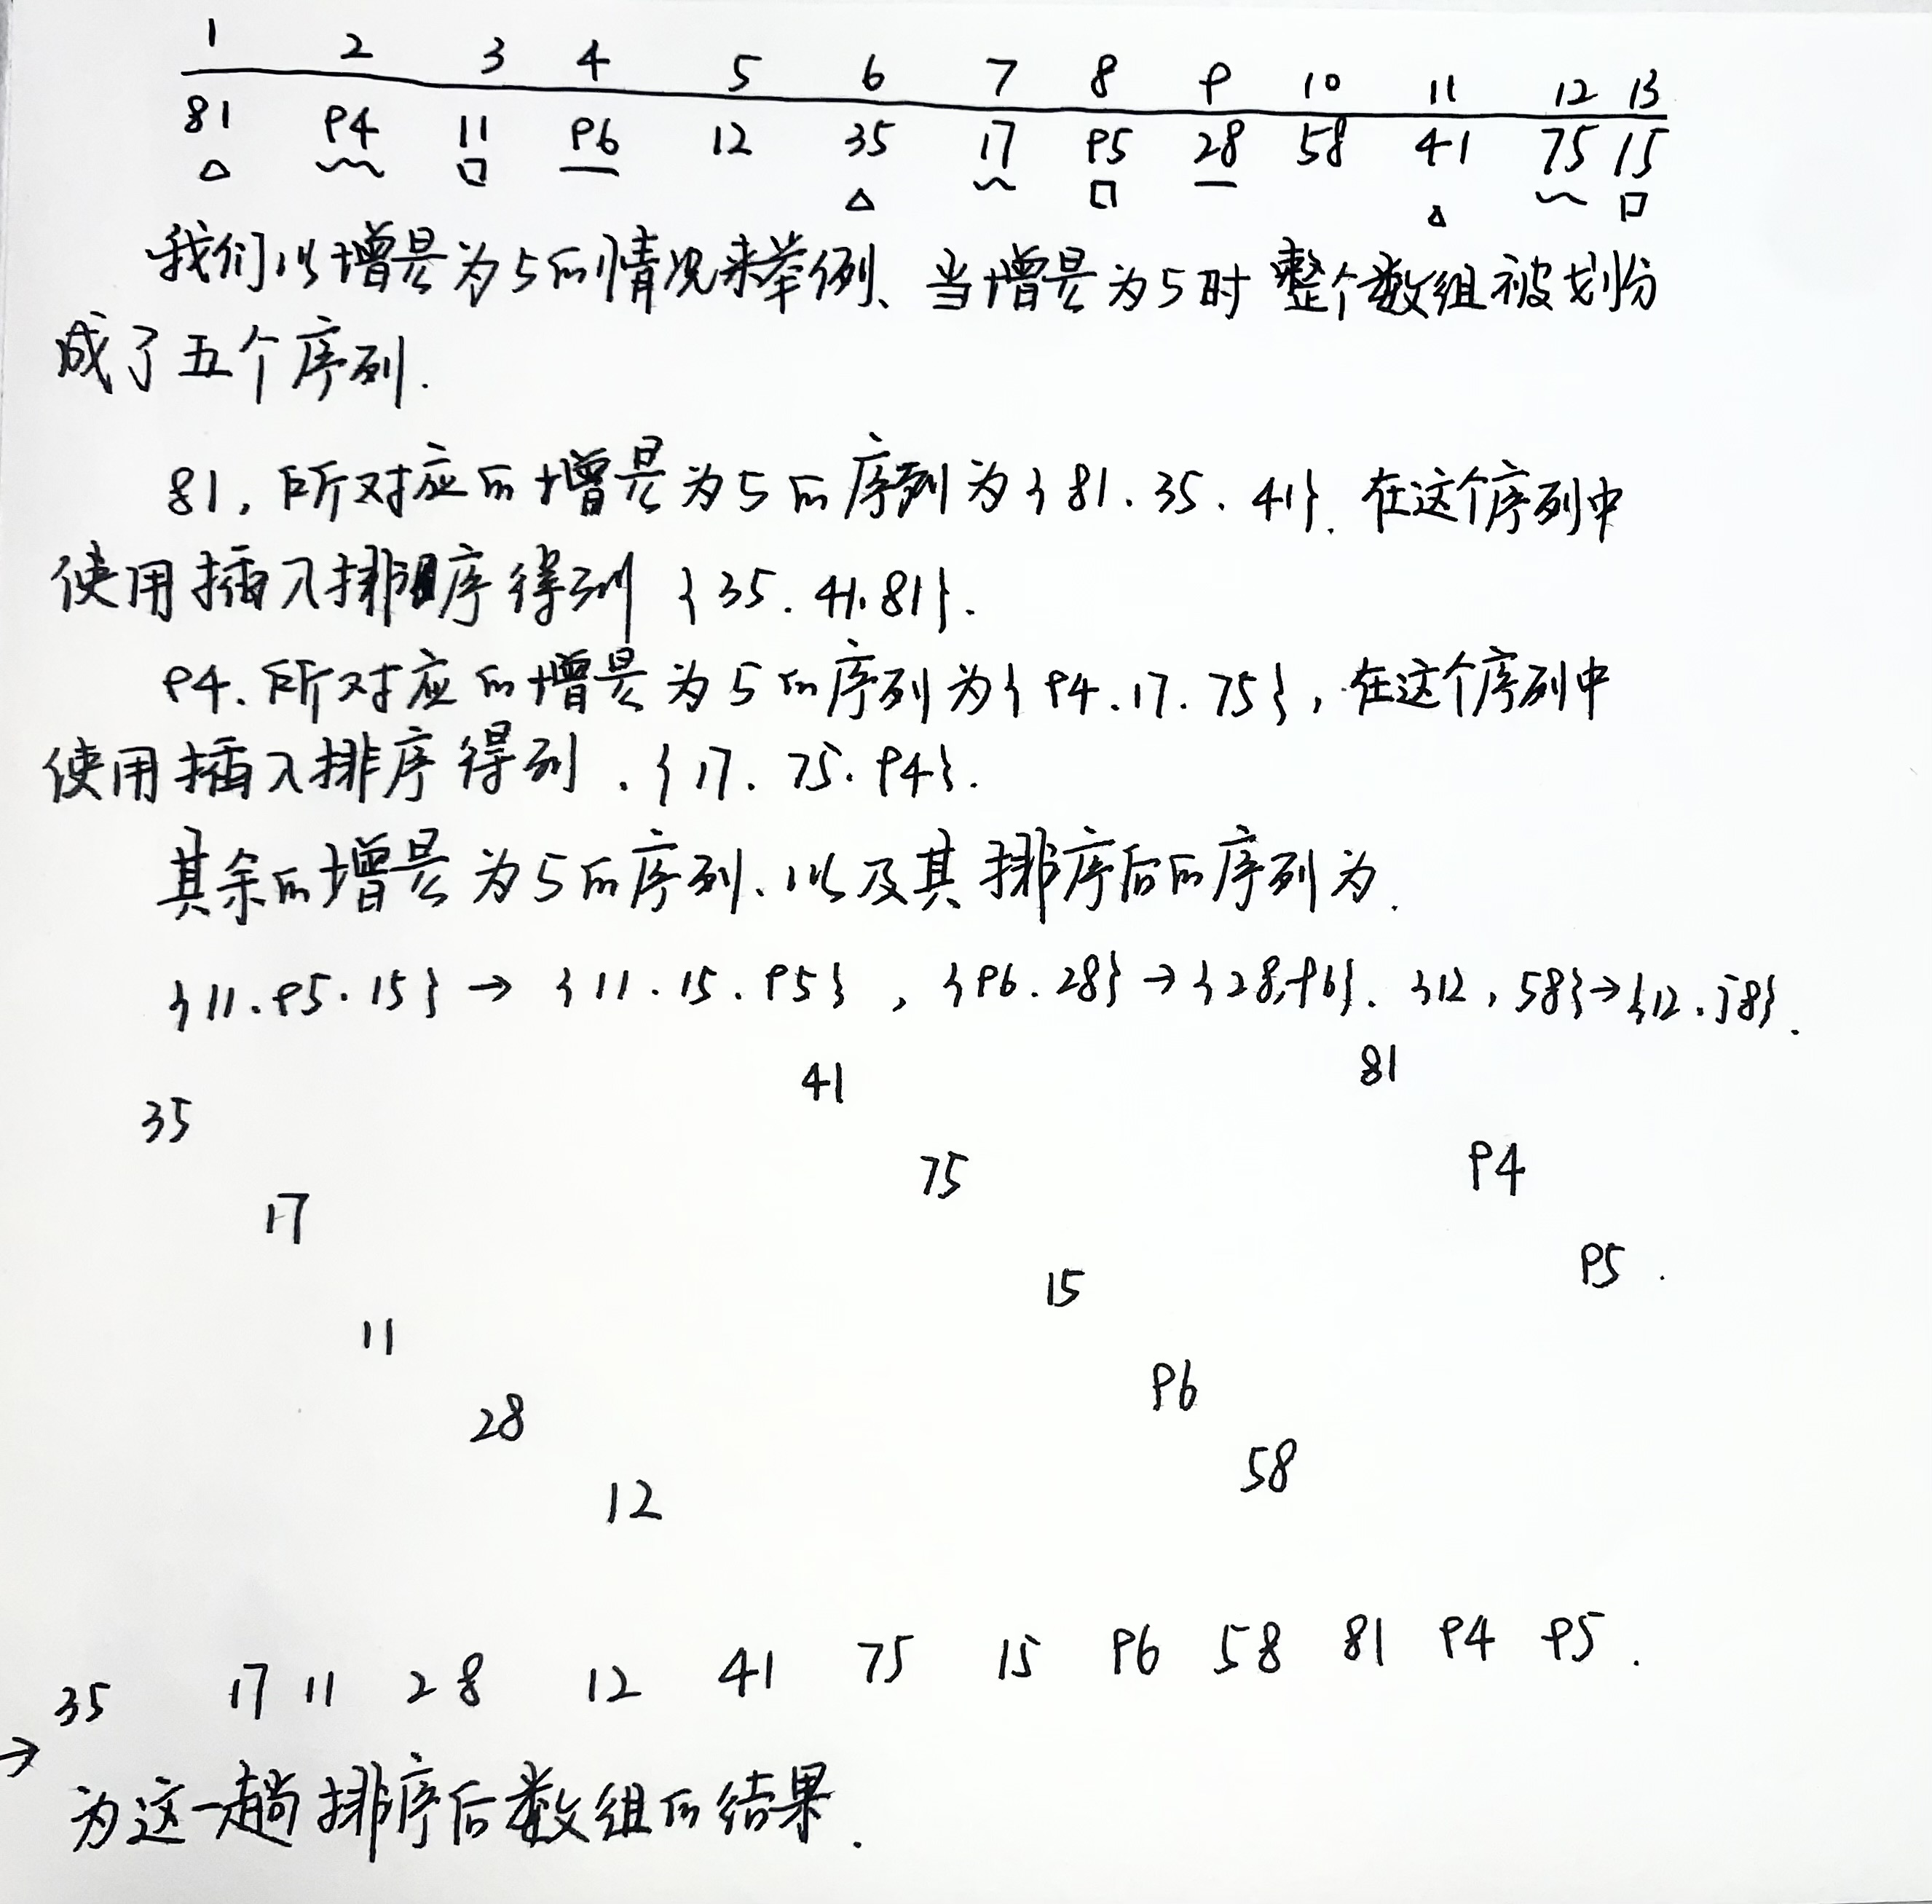 1 2 3 4 5 6 7 8 9 10 11 12 13
81 94 11 96 12 35 17 95 28 58 41 75 15
我们以增量为5的情况来举例、当增量为5时 整个数组被划分
成了五个序列.
81, 所对应的增量为5的序列为{81.35.41}. 在这个序列中
使用插入排序得到 {35.41.81}.
94.所对应的增量为5的序列为{94.17.75},在这个序列中
使用插入排序得到.{17.75.94}.
其余的增量为5的序列、以及其排序后的序列为.
{11.95.15}→{11.15.95},{96.28}→{28,96}.{12,58}→{12.58}.
35 41 81
17 75 94
11 15 95.
28 96
12 58
35 17 11 28 12 41 75 15 96 58 81 94 95.
→
为这一趟排序后数组的结果.